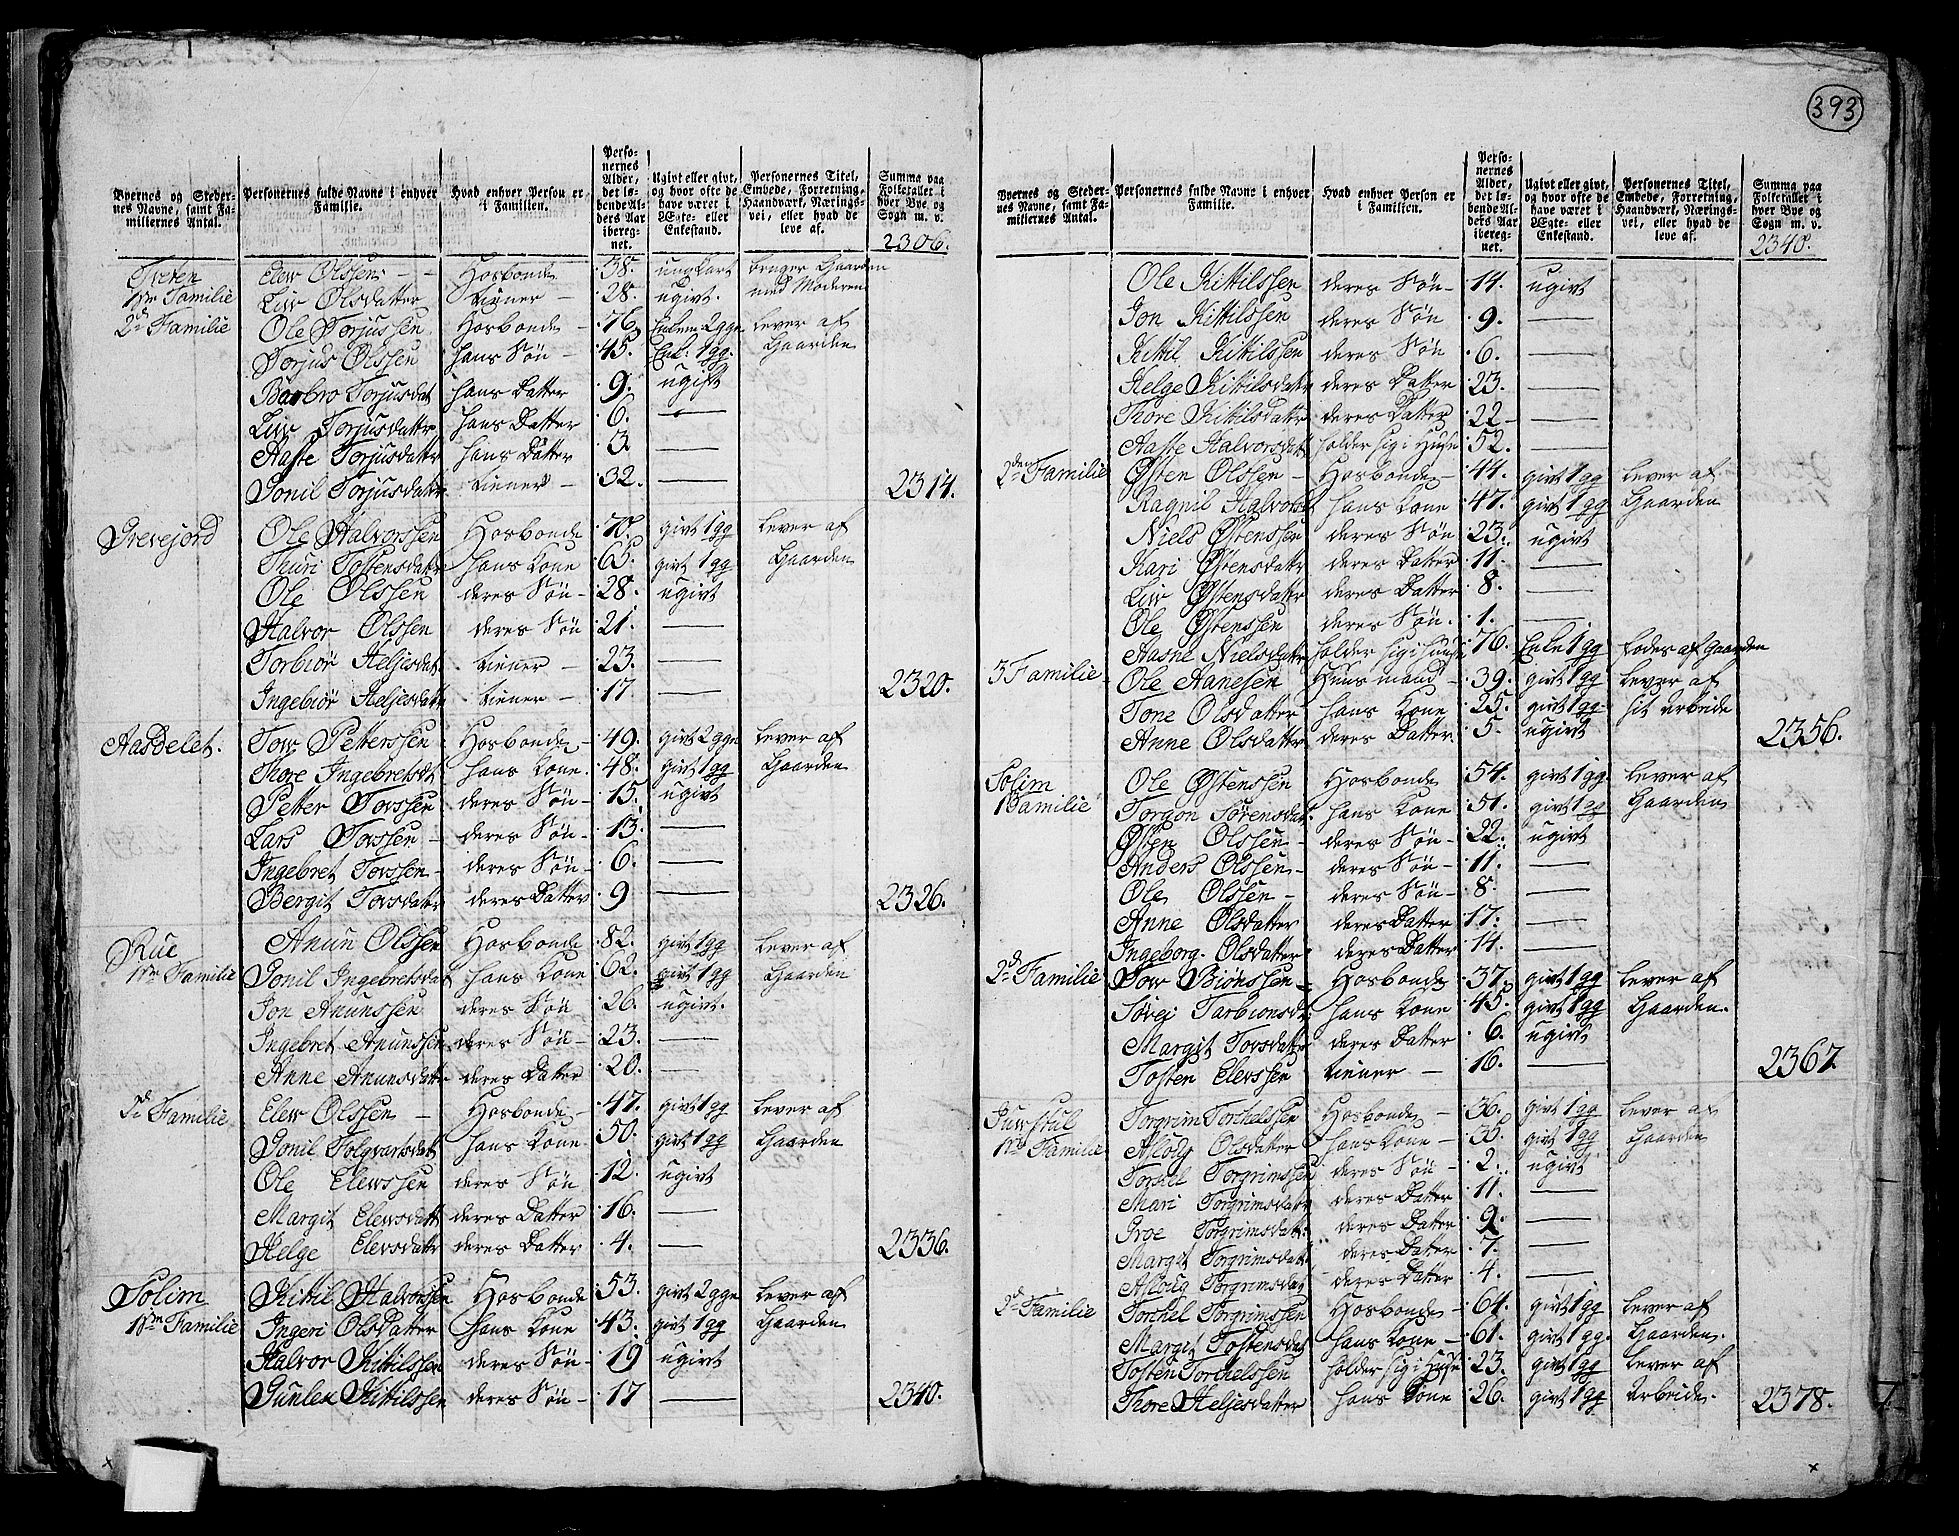 393
Byernes og Stedernes Navne, samt Familiernes Antal. | Personernes fulde Navne i enhver Familie. | Hvad enhver Person er i Familien. | Personernes Alder, det løbende Alders Aar iberegnet. | Ugivt eller givt, og hvor ofte de have været i Ægte- eller Enkestand. | Personernes Titel, Embede, Forretning, Haandværk, Næringsvei, eller hvad de leve af. | Summa paa Folketallet i hver Bye og Sogn m. v.
2306.
Tveten | Elew Olssen | Hosbonde | 38. | ungkarl | bruger Gaarden
1ste Familie | Liw Olsdatter | tiener | 28. | ugivt. | med Moderen
2d Familie | Ole Torjussen | Hosbonde | 76. | Enkem 2gge | lever af
Torjus Olssen | hans Søn | 45. | Enk: 1gg. | Gaarden
Barbro Torjusdat | hans Datter | 9. | ugift
Liw Torjusdatter | hans Datter | 6. | —
Aaste Torjusdattr | hans Datter | 3 | —
Gonil Torjusdattr | tiener | 32. | — | 2314.
Grevejord | Ole Halvorssen | Hosbonde | 70. | givt 1gg | lever af
Thuri Tostensdattr | hans Kone | 65. | givt 1gg | Gaarden
Ole Olssen | deres Søn | 28. | ugivt
Halvor Olssen | deres Søn | 21. | —
Torbiør Heljesdat | tiener | 23. | —
Ingebiør Heljesdattr | tiener | 17. | — | 2320.
Aasdelet. | Tow Petterssen | Hosbonde | 49. | givt 2gge | lever af
Thore Ingebretsdt | hans Kone. | 48. | givt 1gg | Gaarden
Petter Tovssen | deres Søn | 15. | ugivt
Lars Tovssen | deres Søn | 13. | —
Ingebret Tovssen | deres Søn | 6. | —
Bergit Tovsdatter | deres Datter | 9 | — | 2326.
Rue | Anun Olssen | Hosbonde | 82. | givt 1gg | lever af
1ste Familie | Gonil Ingebretsdat | hans Kone | 62. | givt 1gg | Gaarden
Jon Anunssen | deres Søn | 26. | ugivt.
Ingebret Anunssen | deres Søn | 23. | —
Anne Anunsdatter | deres Datter | 20. | —
2d Familie | Elew Olssen | Hosbonde | 47. | givt 1gg | lever af
Gonil Folqvarsdat | hans Kone | 50. | givt 1gg | Gaarden
Ole Elewssen | deres Søn | 12. | ugivt
Margit Elewsdatt | deres Datter | 16. | —
Helge Elevsdattr | deres Datter | 4. | — | 2336.
Solim | Kittil Halvorssen | Hosbonde | 53. | givt 2gge | lever af
1ste Familie | Ingeri Olsdatter | hans Kone | 43. | givt 1gg | Gaarden
Halvor Kittilssen | deres Søn | 19 | ugivt
Gunlek Kittilssen | deres Søn | 17 | — | 2340.
Byernes og Stedernes Navne, samt Familiernes Antal. | Personernes fulde Navne i enhver Familie. | Hvad enhver Person er i Familien. | Personernes Alder, det løbende Alders Aar iberegnet. | Ugivt eller givt, og hvor ofte de have været i Ægte- eller Enkestand. | Personernes Titel, Embede, Forretning, Haandværk, Næringsvei, eller hvad de leve af. | Summa paa Folketallet i hver Bye og Sogn m. v.
2340.
Ole Kittilssen | deres Søn | 14. | ugivt
Jon Kittilssen | deres Søn | 9. | —
Kittil Kittilssen | deres Søn | 6. | —
Helge Kittilsdattr | deres Datter | 23. | —
Thore Kittilsdattr | deres Datter | 22 | —
Aaste Halvorsdatt | holder sig i Huse | 52. | —
2den Familie | Østen Olssen | Hosbonde | 44. | givt 1gg | lever af
Ragnil Halvorsd | hans Kone | 47. | givt 1gg | Gaarden
Niels Østenssen | deres Søn | 23. | ugivt
Kari Østensdattr | deres Datter | 11. | —
Liw Østensdattr | deres Datter | 8. | —
Ole Østenssen | deres Søn. | 1. | —
Aasne Nielsdattr | holder sig i huse | 76. | Enke 1gg | fødes af Gaarden
3 Familie | Ole Hanesen | Huusmand | 39. | givt 1gg | lever af
Tone Olsdatter | hans Kone | 25. | givt 1gg | sit Arbeide
Anne Olsdatter | deres Datter. | 5. | ugivt | 2356.
Solim | Ole Østenssen | Hosbonde | 54. | givt 1gg. | lever af
1 Familie | Torgon Sørensdat | hans Kone | 51. | givt 1gg | Gaarden
Østen Olssen | deres Søn | 22. | ugivt
Anders Olssen | deres Søn | 11. | —
Ole Olssen | deres Søn | 8. | —
Anne Olsdatter | deres Datter | 17. | —
Ingeborg Olsdatter | deres Datter | 14. | —
2d Familie | Tow Biønssen | Hosbonde | 37. | givt 1gg | lever af
Søvei Tarbionsd | hans Kone | 45. | givt 1gg | Gaarden.
Margit Tovsdattr | deres Datter | 6. | ugivt
Tosten Elevssen | tiener | 16. | — | 2367
Juwstul | Torgrim Torchelssen | Hosbonde | 36. | givt 1gg | lever af
1ste Familie | Asloug Olsdatter | hans Kone | 36. | givt 1gg | Gaarden
Torkel Torgrimssen | deres Søn | 2. | ugivt
Mari Torgrimsdattr | deres Datter | 11. | —
Groe Torgrimsdatt. | deres Datter | 9. | —
Margit Torgrimsdatt | deres Datter | 7. | —
Asloug Torgrimsdat | deres Datter | 4. | —
2d Familie | Torchel Torgrimssen | Hosbonde | 64. | givt 1gg | lever af
Margit Tostensdat | hans Kone | 61. | givt 1gg. | Gaarden.
Tosten Torchelssen | holder sig i Huse | 23. | givt 1gg | lever af
Thore Heljesdatter | hans Kone | 26. | givt 1gg | Arbeide. | 2378.